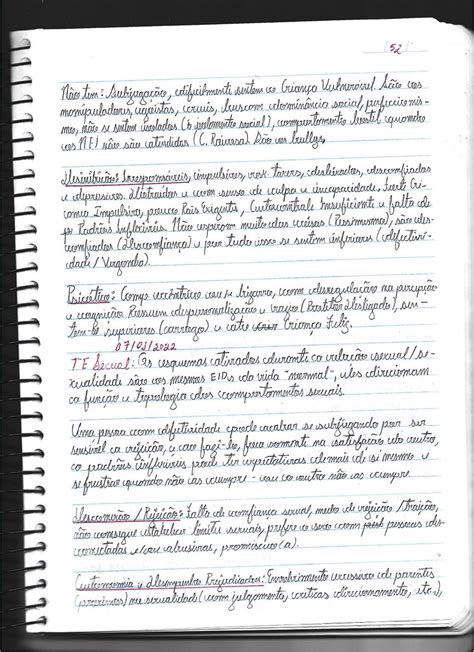 52
Não tem: Subjugação, dificilmente sentem a Criança Vulnerável. São os
manipuladores, egoístas, cruéis, buscam dominância social, perfeccionis-
mo, não se sentem isolados (o isolamento social), comportamento hostil quando
as NEI não são atendidas (C. Raivosa) São os bullys.
Desinibição: Irresponsáveis, impulsivos, desleixados, desconfiados
e depressivos. Distraídos e com senso de culpa e incapacidade. Forte Cri-
ança Impulsiva, poucos Pais Exigentes, Autocontrole Insuficiente e falta
de Padrões Inflexíveis. Não esperam muito das coisas (Pessimismo), são des-
confiados (Desconfiança) e por tudo isso se sentem inferiores (defectivi-
dade/Vergonha).
Psicótico: Comp. excêntrico ou bizarro, com desregulação na percepção
e cognição. Possuem despersonalização e vazio (Protetor Desligado), sen-
tem-se superiores (arrogo) e até Criança Feliz.
07/01/2022
TE Sexual: Os esquemas ativados durante a relação sexual/se-
xualidade são os mesmos EIDs da vida "normal", eles direcionam
a função e tipologia dos comportamentos sexuais.
Uma pessoa com defitividade pode acabar se subjugando por ser
sensível a rejeição, e ao fazê-lo, foca somente na satisfação do outro,
o padrões inflexíveis pode ter expectativas demais de si mesmo e
se frustra quando não as cumpre - ou o outro não as cumpre.
Desconexão/Rejeição: Falta de confiança sexual, medo de rejeição/traição,
não consegue estabelecer limites sexuais, prefere o sexo com pessoas des-
conectadas e/ou abusivas, promíscuo(a).
Autonomia e Desempenho Prejudicados: Envolvimento excessivo de parentes
(próximos) na sexualidade (com julgamento, críticas, direcionamento, etc.),